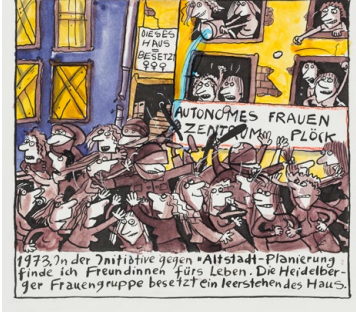 DIESES
HAUS
=
BESETZT
♀♀♀
AUTONOMES FRAUEN
ZENTRUM PLÖCK
1973. In der Initiative gegen "Altstadt-Planierung
finde ich Freundinnen fürs Leben. Die Heidelber-
ger Frauengruppe besetzt ein leerstehendes Haus.